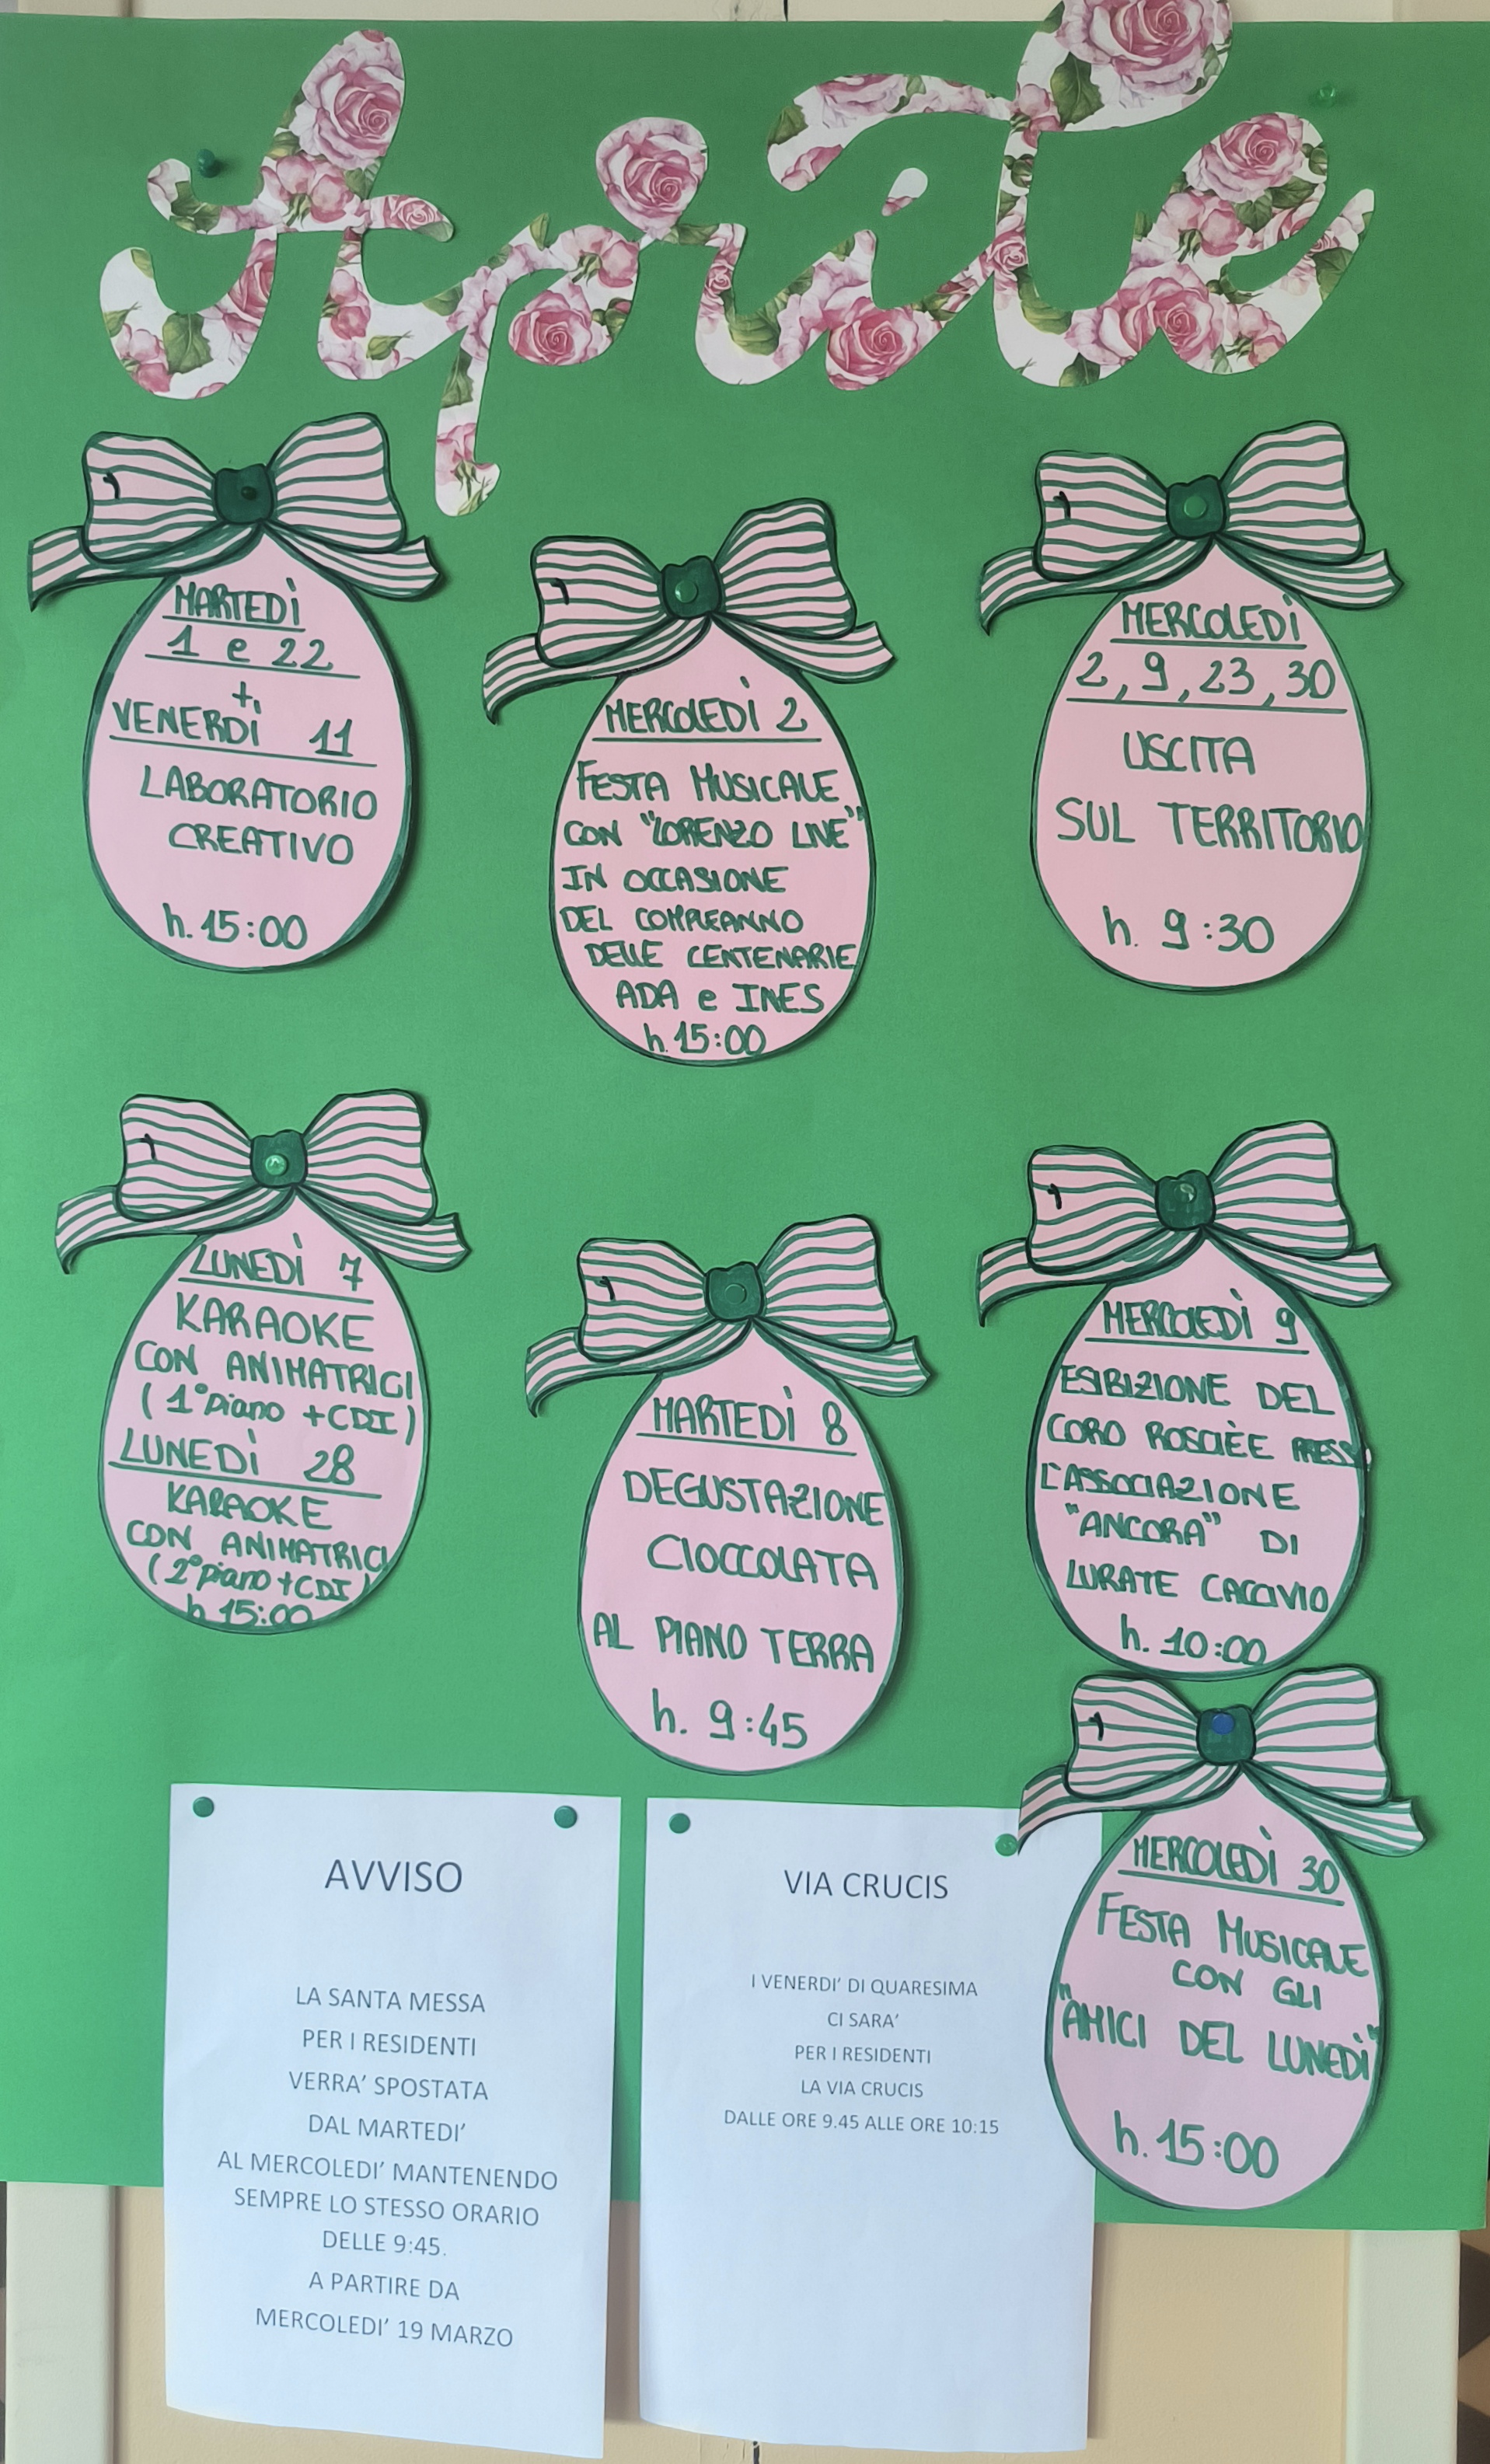 Aprile
MARTEDÌ
1 e 22
+
VENERDÌ 11
LABORATORIO
CREATIVO
h. 15:00
MERCOLEDÌ 2
FESTA MUSICALE
CON "LORENZO LIVE"
IN OCCASIONE
DEL COMPLEANNO
DELLE CENTENARIE
ADA e INES
h. 15:00
MERCOLEDÌ
2, 9, 23, 30
USCITA
SUL TERRITORIO
h. 9:30
LUNEDÌ 7
KARAOKE
CON ANIMATRICI
(1° piano + CDI)
LUNEDÌ 28
KARAOKE
CON ANIMATRICI
(2° piano + CDI)
h. 15:00
MARTEDÌ 8
DEGUSTAZIONE
CIOCCOLATA
AL PIANO TERRA
h. 9:45
MERCOLEDÌ 9
ESIBIZIONE DEL
CORO ROSCIÈE PRESSO
L'ASSOCIAZIONE
"ANCORA" DI
LURATE CACCIVIO
h. 10:00
MERCOLEDÌ 30
FESTA MUSICALE
CON GLI
"AMICI DEL LUNEDÌ"
h. 15:00
AVVISO
LA SANTA MESSA
PER I RESIDENTI
VERRA' SPOSTATA
DAL MARTEDI'
AL MERCOLEDI' MANTENENDO
SEMPRE LO STESSO ORARIO
DELLE 9:45.
A PARTIRE DA
MERCOLEDI' 19 MARZO
VIA CRUCIS
I VENERDI' DI QUARESIMA
CI SARA'
PER I RESIDENTI
LA VIA CRUCIS
DALLE ORE 9.45 ALLE ORE 10:15